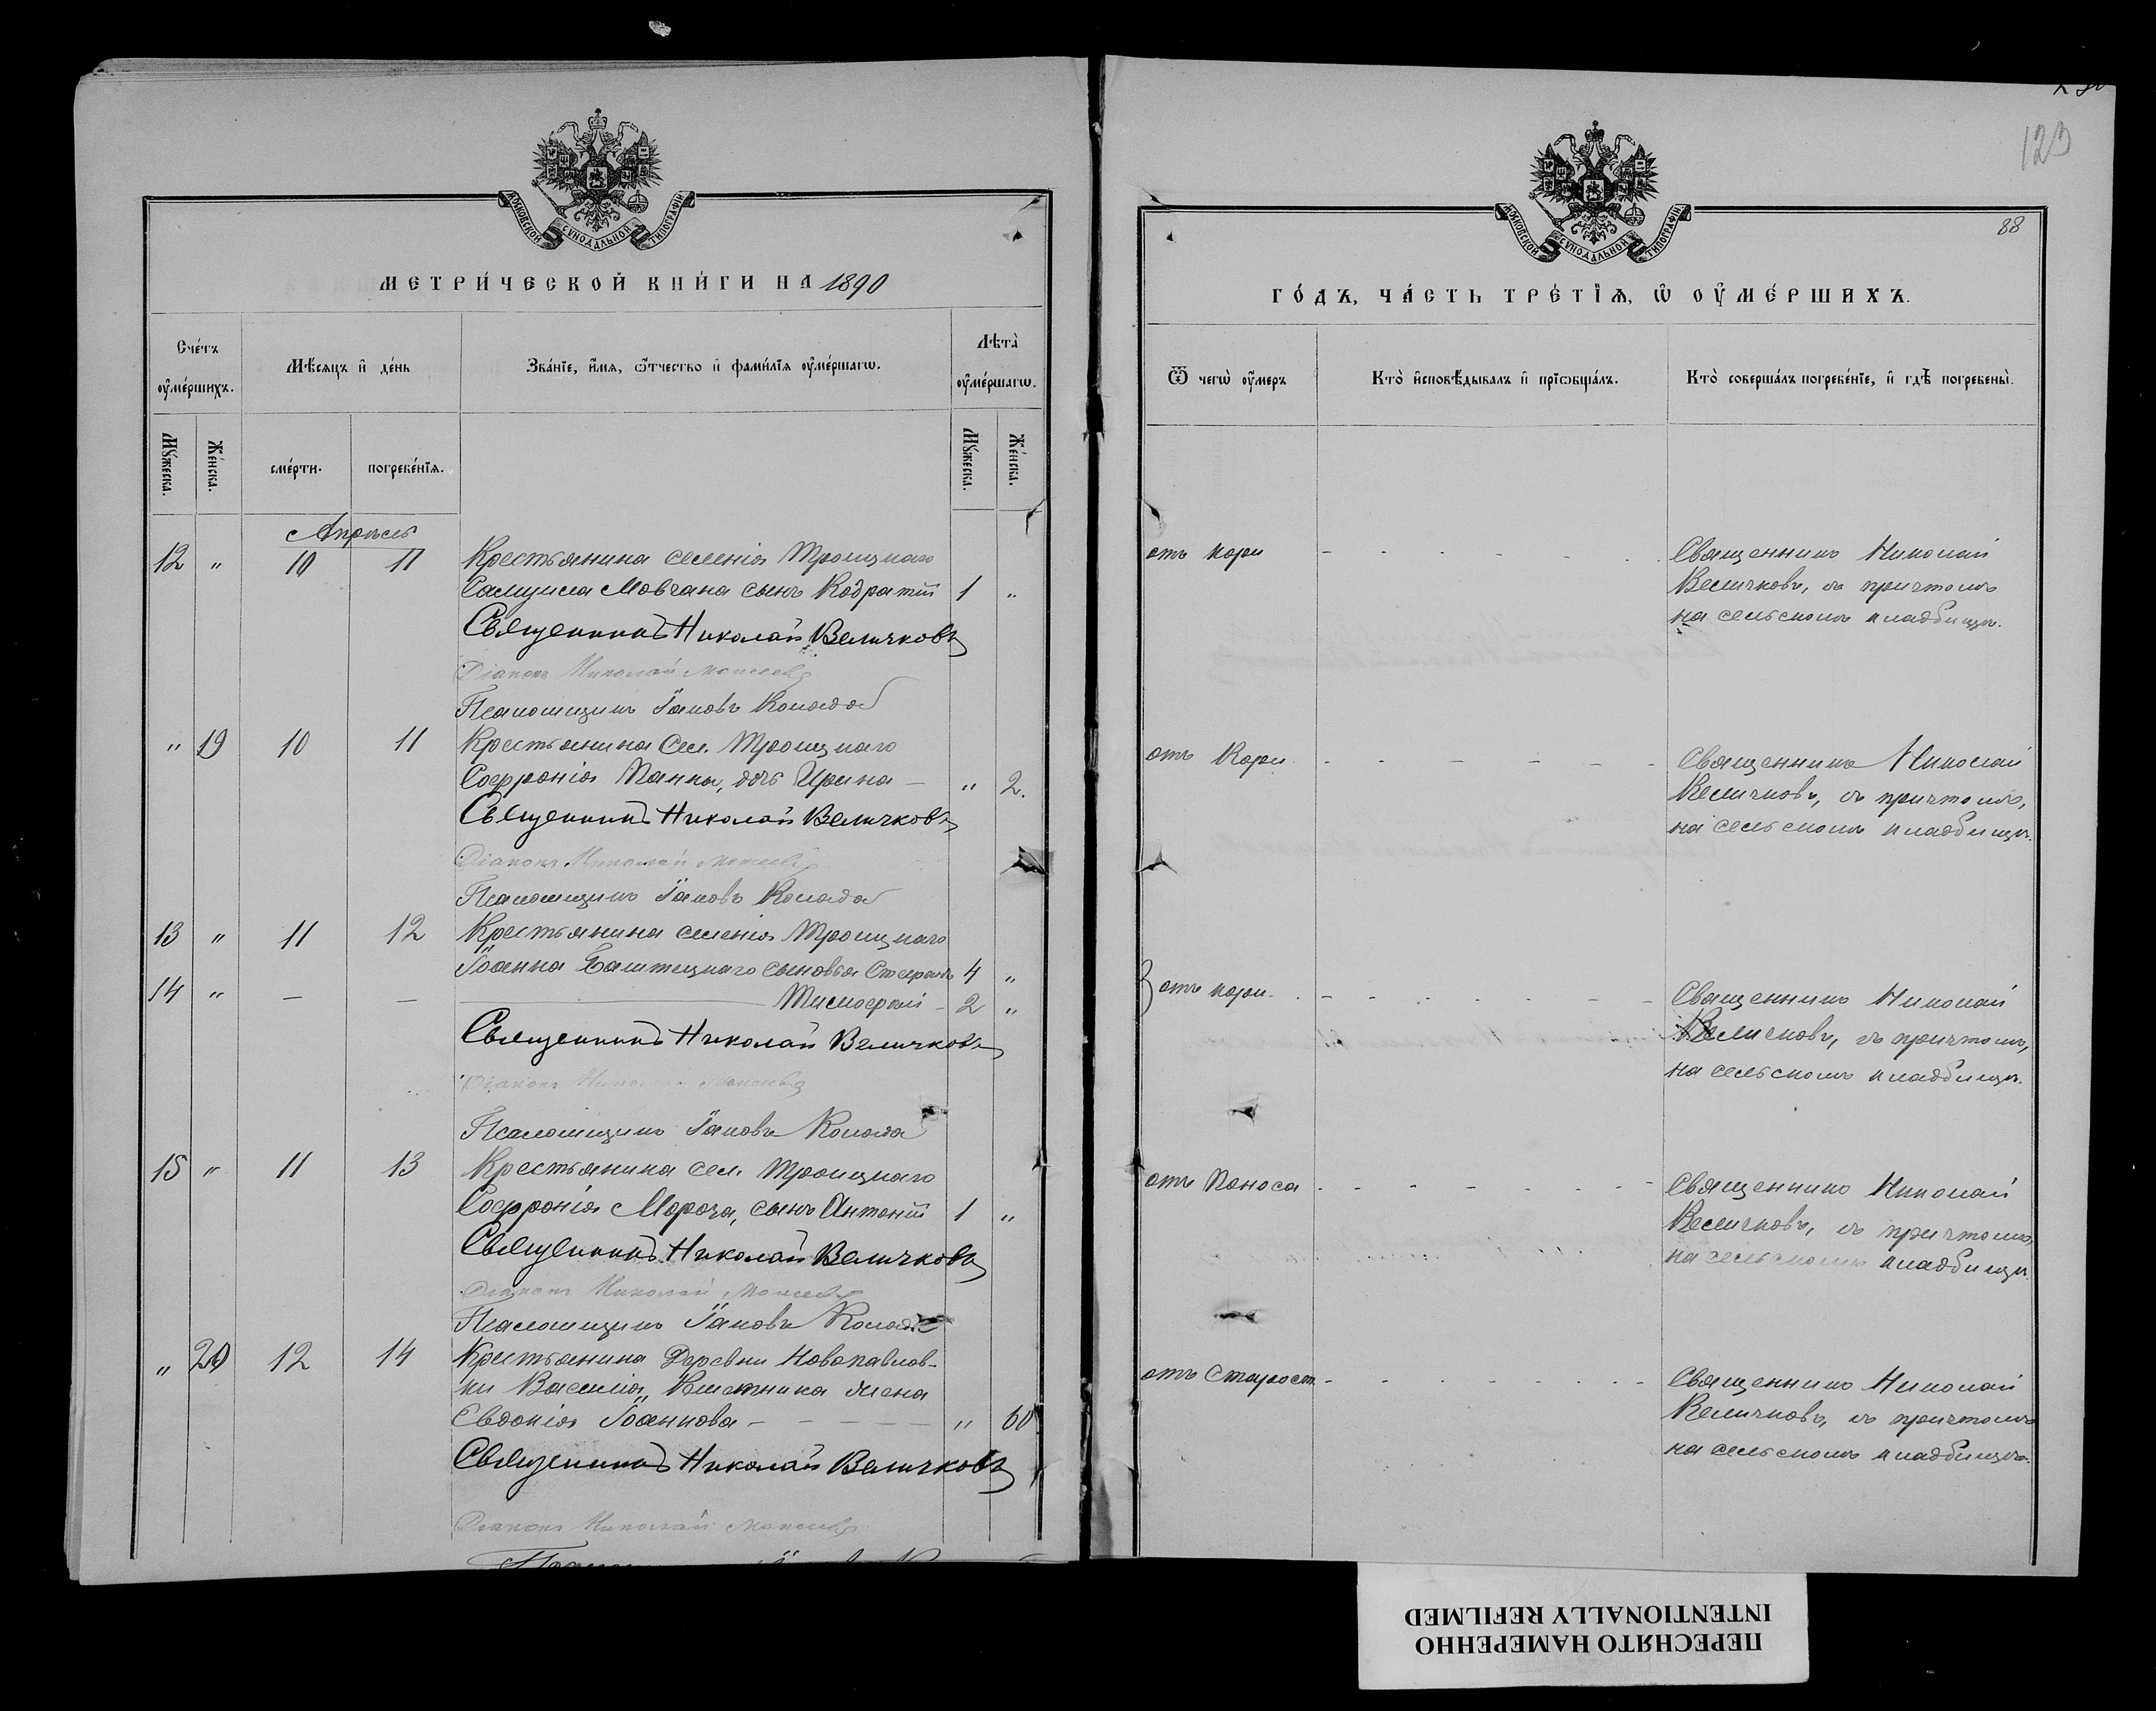 123
88
МОСКОВСКОЙ СѴНОДАЛЬНОЙ ТИПОГРАФІИ
МЕТРИ́ЧЕСКОЙ КНИ́ГИ НА 1890
Сче́тъ ᲂу҆ме́ршихъ.
Мѣ́сяцъ и҆ де́нь
Зва́нїе, и҆́мя, ѻ҆́тчество и҆ фами́лїя ᲂу҆ме́ршагѡ.
Лѣта̀ ᲂу҆ме́ршагѡ.
Мꙋ́жеска.
Же́нска.
сме́рти.
погребе́нїя.
Мꙋ́жеска.
Же́нска.
Апрѣль
12 " 10 11 Крестьянина селенія Троицкаго
Самуила Мовчана сынъ Кодратій 1 "
Священникъ Николай Величковъ
Діаконъ Николай Моисеевъ
Псаломщикъ Іаковъ Колода
" 19 10 11 Крестьянина Сел. Троицкаго
Софронія Панки, дочь Ирина — " 2.
Священникъ Николай Величковъ
Діаконъ Николай Моисеевъ
Псаломщикъ Іаковъ Колода
13 " 11 12 Крестьянина селенія Троицкаго
Іоанна сыновья 4 "
14 " — — — Тимофей — 2 "
Священникъ Николай Величковъ
Діаконъ Николай Моисеевъ
Псаломщикъ Іаковъ Колода
15 " 11 13 Крестьянина сел. Троицкаго
Софронія Мороча, сынъ Антоній 1 "
Священникъ Николай Величковъ
Діаконъ Николай Моисеевъ
Псаломщикъ Іаковъ Колода
" 20 12 14 Крестьянина Деревни Новопавлов-
ки Василія, жена
Евдокія Іоаннова — — — — — " 60
Священникъ Николай Величковъ
Діаконъ Николай Моисеевъ
МОСКОВСКОЙ СѴНОДАЛЬНОЙ ТИПОГРАФІИ
ГО́ДЪ, ЧА́СТЬ ТРЕ́ТЇѦ, Ѽ ОУ҆МЕ́РШИХЪ.
Ѿ чегѡ̀ ᲂу҆́меръ
Кто̀ и҆сповѣ́дывалъ и҆ прїѡбща́лъ.
Кто̀ соверша́лъ погребе́нїе, и҆ гдѣ̀ погребены̀.
отъ кори - - - - - - Священникъ Николай
Величковъ, съ причтомъ
на сельскомъ кладбищѣ.
отъ Кори - - - - - - Священникъ Николай
Величковъ, съ причтомъ,
на сельскомъ кладбищѣ.
} отъ кори - - - - - - Священникъ Николай
Величковъ, съ причтомъ,
на сельскомъ кладбищѣ.
отъ Поноса - - - - - - Священникъ Николай
Величковъ, съ причтомъ,
на сельскомъ кладбищѣ.
отъ Старост. - - - - - - Священникъ Николай
Величковъ, съ причтомъ
на сельскомъ кладбищѣ.
ПЕРЕСНЯТО НАМЕРЕННО
INTENTIONALLY REFILMED